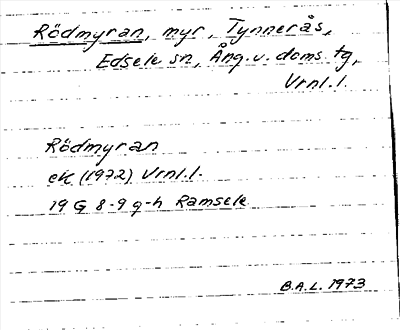 Rödmyran, myr, Tynnerås,
Edsele sn, Ång. v. doms. tg,
Vrnl. l.
Rödmyran
ek (1972) Vrnl. l.
19 G 8-9 g-h Ramsele
B.A.L. 1973